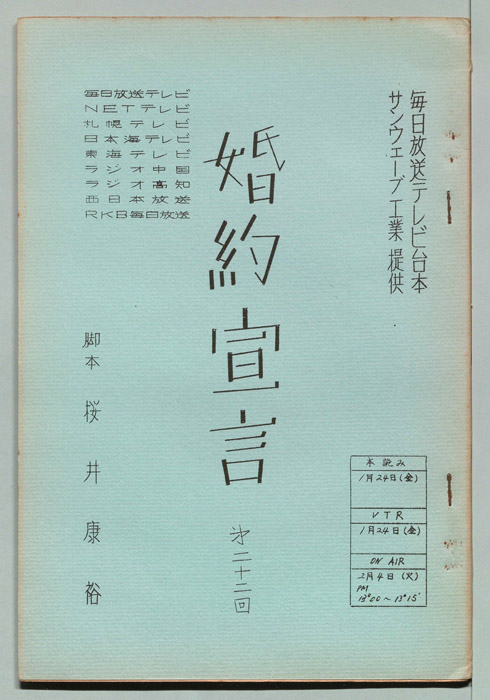 毎日放送テレビ台本
サンウェーブ工業 提供
婚約宣言
第二十二回
毎日放送テレビ
NETテレビ
札幌テレビ
日本海テレビ
東海テレビ
ラジオ中国
ラジオ高知
西日本放送
RKB毎日放送
脚本 桜井康裕
本読み
1月24日(金)
VTR
1月24日(金)
ON AIR
2月4日(火)
PM
13°00~13°15'